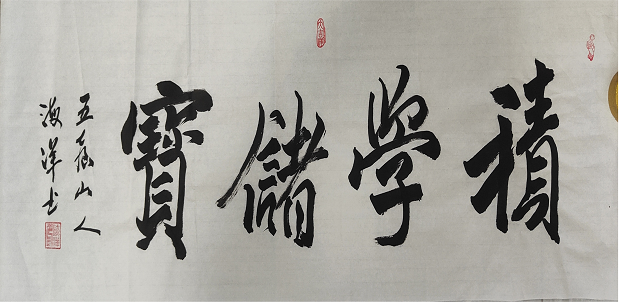 積学儲寶
五嶽山人
海洋书